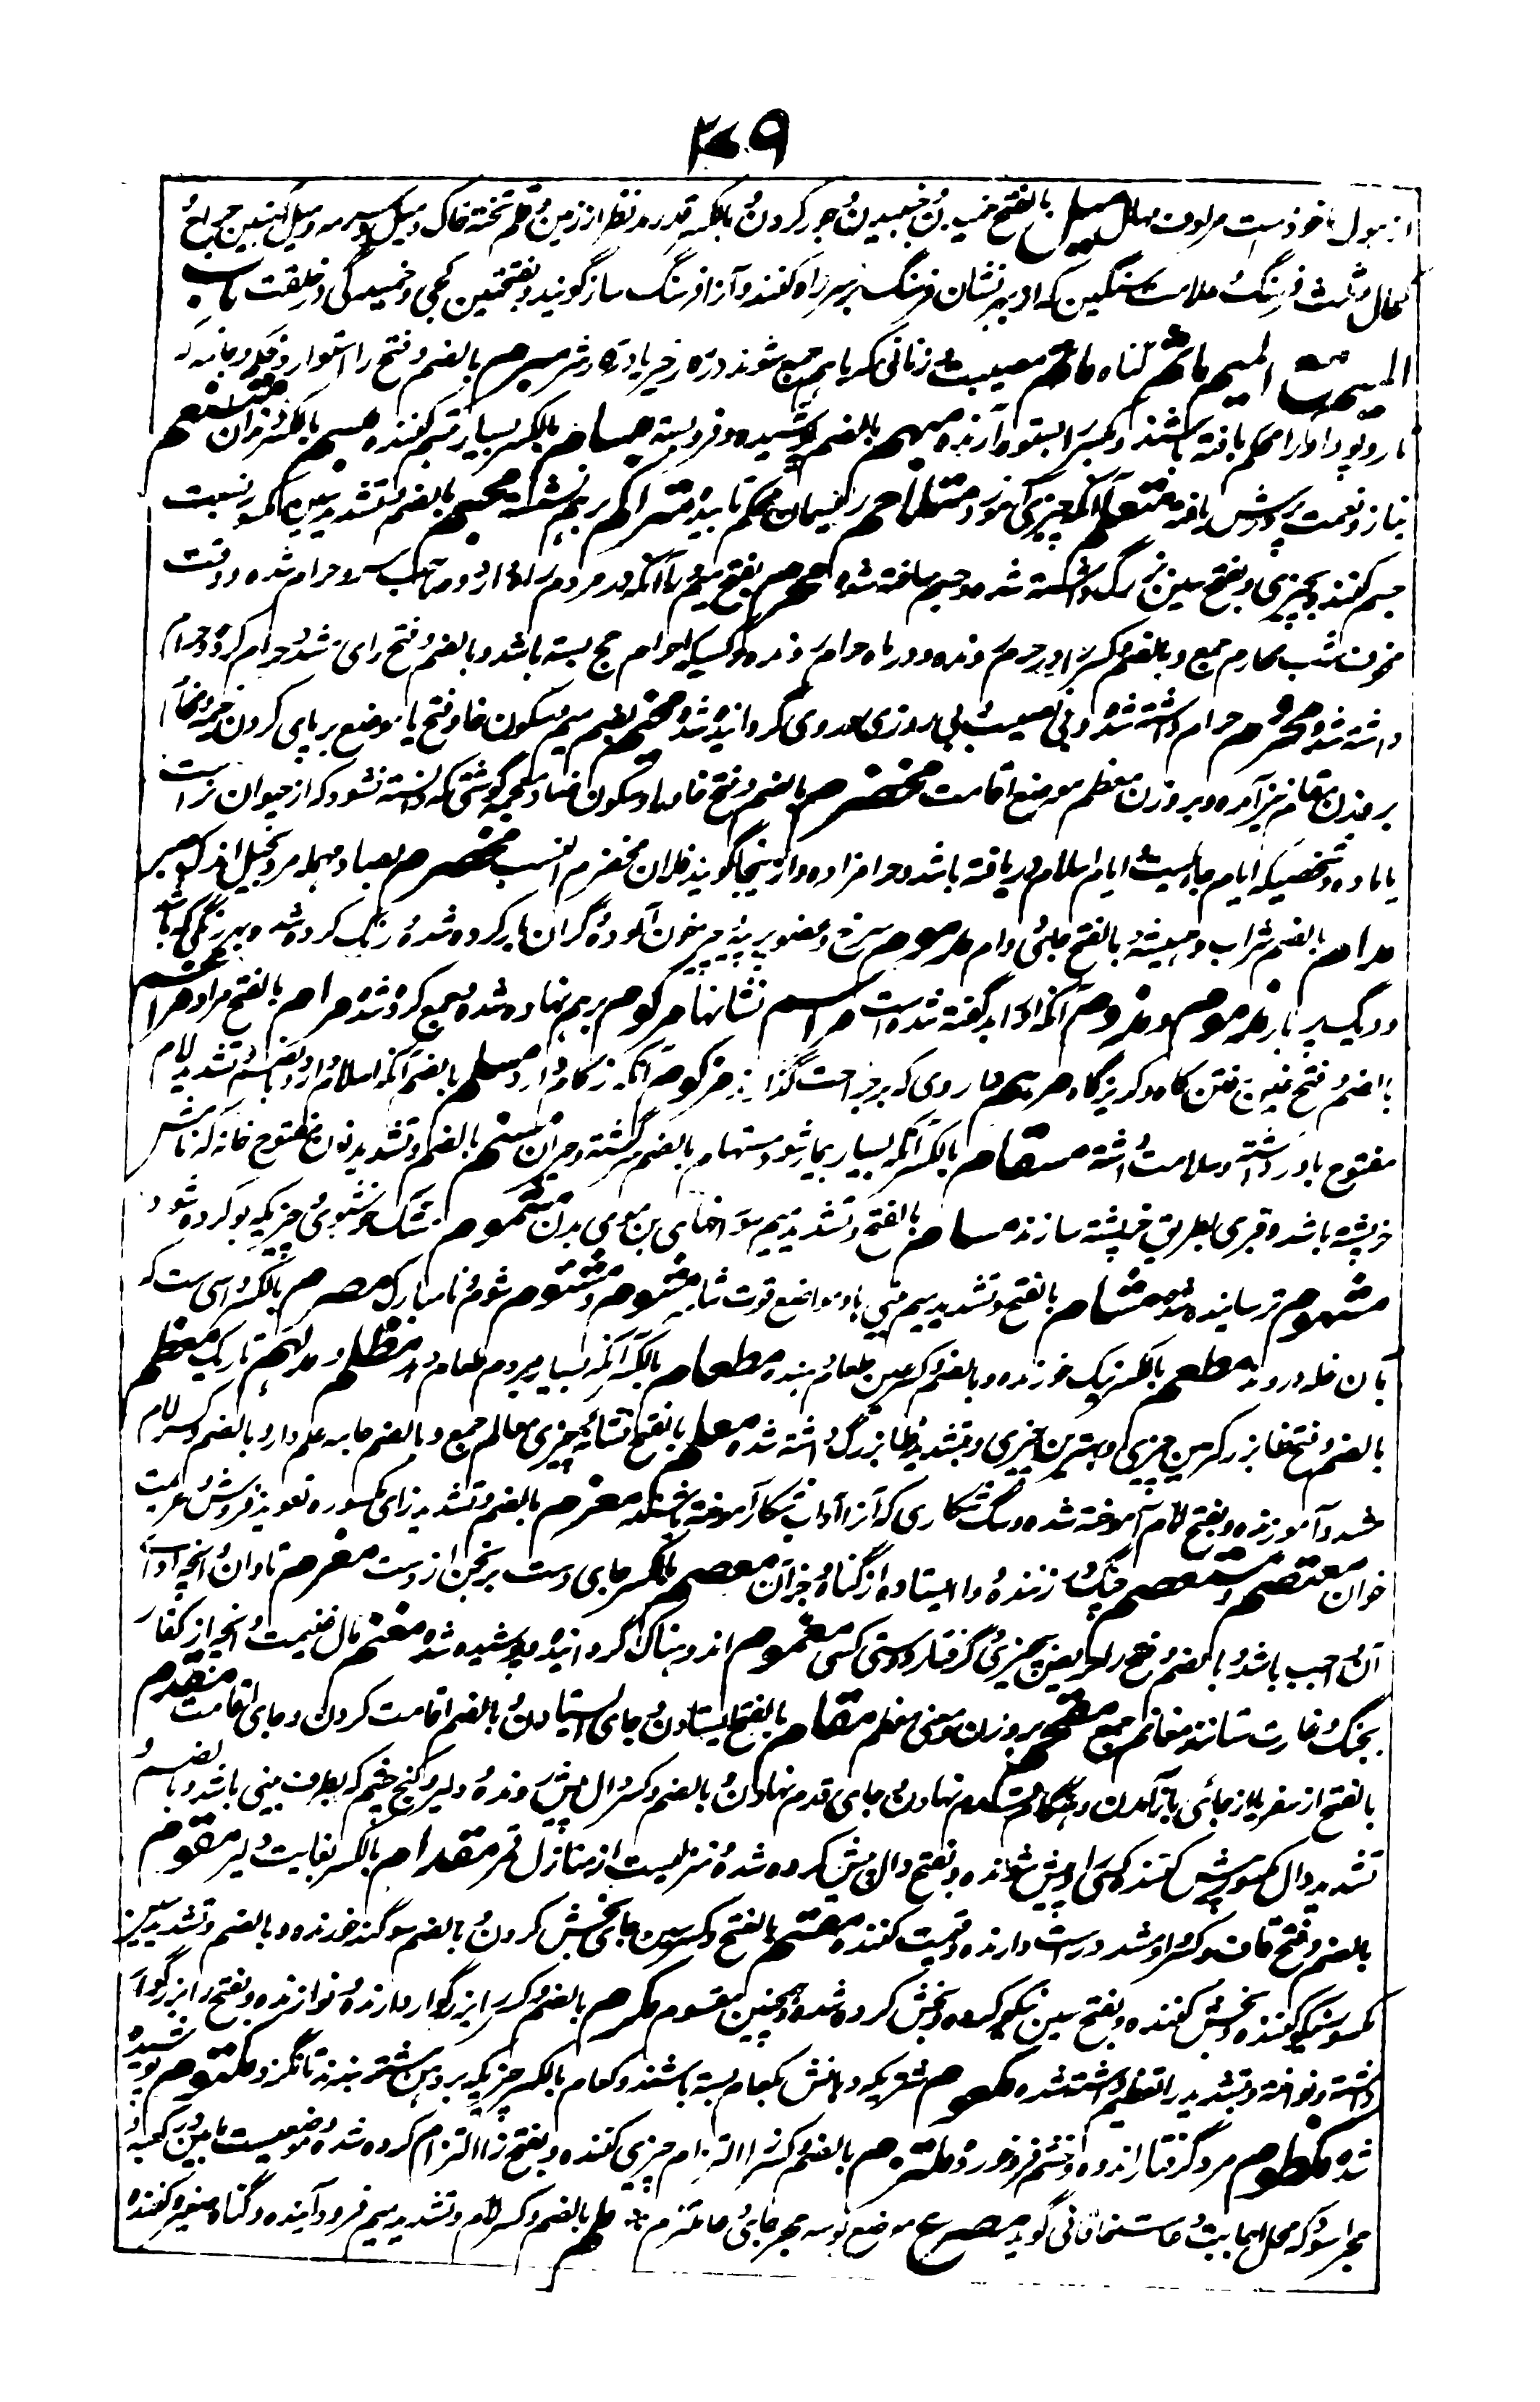 ۴۰۹
از مول ماخوذست مرادف مهال میل بالفتح خمیدن و چسپیدن و جور کردن و بالکسر قدر مد نظر از زمین و قلم تخته خاک و میل سرمه و میل آهنین جراح
کحال و ثلث فرسنگ و علامت سنگین که از بهر نشان فرسنگ بر سر راه کنند و آنرا فرسنگ سار گویند و بفتحتین کجی و خمیدگی در خلقت باب
المیم مع المیم ماثم گناه ماتم مصیبت و زنانی که باهم جمع شوند در خیر یا در شر مبرم بالضم و فتح را استوار و محکم و جامه که
تار و پود او را محکم بافته باشند و بکسر را بستوه آرنده مبهم بالضم پوشیده و فرو بسته بسام بالکسر بسیار تبسم کننده مبسم بالکسر دندان متنعم
بناز و نعمت پرورش یافته متعلم آنکه چیزی آموزد متلاحم ریسمان محکم تابیده متراکم بر هم نشسته مجسم بالضم و تشدید سین مکسور نسبت
جسم کننده بچیزی و بفتح سین بزرگ داشته شده و جسم ساخته شده محرم بفتح میم و را آنکه در حرم سرا راه دارد و صاحب سر و حرام شده و وقت
مخوف شب محارم جمع و بالضم و کسر را در حرم رونده و در ماه حرام رونده و کسیکه احرام حج بسته باشد و بالضم و فتح رای مشدد حرام کرده و حرام
داشته شده محروم حرام داشته شده و بی نصیب و بی روزی و بی روی گردانیده شده مخیم بضم میم و سکون خا و فتح یا موضع برپای کردن خیمه و بمعنی
بر وزن مقام نیز آمده و بر وزن معظم موضع اقامت مخضرم بالضم و فتح خا و را و سکون ضاد معجمه گوشتی که دانسته نشود که از حیوان نر است
یا ماده و شخصیکه ایام جاهلیت و ایام اسلام دریافته باشد و حرامزاده و از اینجا گویند فلان مخضرم النسب مخصرم بصاد مهمله مرد بخیل اندک خیر
مدام بالضم شراب و همیشه و بالفتح جای دام مدموم سرخ و عضو پر پیه و چیز بخون آلوده گران بار کرده شده و رنگ کرده شده و بهر رنگی که باشد
و دیگ پر بار مذموم و مذمم آنکه او را بد گفته شده است مراسم نشانها مرکوم بر هم نهاده شده و جمع کرده شده مرام بالفتح مراد مراغم
بالضم و فتح غین رفتن گاه و گریزگاه مرهم داروی که بر جراحت گذارند مزکوم آنکه زکام دارد مسلم بالضم آنکه اسلام دارد و بالضم و تشدید لام
مفتوح باور داشته و سلامت داشته مسقام بالکسر آنکه بسیار بیمار شود مستهام بالضم سرگشته و حیران مسنم بالضم و تشدید نون مفتوح خانه که بامش
خرپشته باشد و قبری بطریق خرپشته سازند مسام بالفتح و تشدید میم سوراخهای بن موی بدن مشموم مشک و خوشبوی و چیزیکه بو کرده شود
مشهوم ترسانیده شده مشام بالفتح و تشدید میم بینی باد مواضع قوت شامه مشئوم و مشتوم شوم و نامبارک مصرم بالکسر داسی است که
بان غله دروند مطعم بالکسر نیک خورنده و بالضم و کسر عین طعام دهنده مطعام بالکسر آنکه بسیار بمردم طعام دهد مظلم و مدلهم تاریک معظم
بالضم و فتح ظا بزرگترین چیزی و بهترین چیزی و بتشدید ظا بزرگ داشته شده معلم بالفتح نشانه چیزی معالم جمع و بالضم جامه علم دار و بالضم و کسر لام
مشدد آموزنده و بفتح لام آموخته شده و سگ شکاری که آنرا آداب شکار آموخته باشند معزم بالضم و تشدید زای مکسوره تعویذ فروش و عزیمت
خوان معتصم و مستعصم چنگ در زننده و واایستاده از گناه و جز آن معصم بالکسر جای دست برنجن از دست مغرم تاوان و آنچه ادای
آن واجب باشد و بالضم و فتح را حریص بچیزی و گرفتار دوستی کسی مغموم اندوهناک گردانیده و پوشیده شده مغنم مال غنیمت و آنچه از کفار
بجنگ و غارت ستانند مغانم جمع مفخم بر وزن و معنی معظم مقام بالفتح ایستادن و جای ایستادن و بالضم اقامت کردن و جای اقامت مقدم
بالفتح از سفر یا از جائی باز آمدن و هنگام قدم نهادن و جای قدم نهادن و بالضم و کسر دال پیش رونده و دلیر و کنج چشم که بطرف بینی باشد و بالضم و
تشدید دال مکسور پیش کننده کسی را و پیش شونده و بفتح دال پیش کرده شده و منزلیست از منازل قمر مقدام بالکسر بغایت دلیر مقوم
بالضم و فتح قاف و کسر واو مشدد راست دارنده و قیمت کننده مقسم بالفتح و کسر سین جای بخش کردن و بالضم سوگند خورنده و بالضم و تشدید سین
مکسور نیکو کننده و بخش کننده و بفتح سین نیکو کرده و بخش کرده شده و همچنین مقسوم مکرم بالضم و کسر را بزرگوار دارنده و نوازنده و بفتح را بزرگوار
داشته و نواخته و بتشدید را تعظیم داشته شده مکعوم شتریکه دهانش بکعام بسته باشند و کعام بالکسر چیزیکه بر دهن شتر بندند تا نگزد مکتوم پوشیده
شده مکظوم مرد گرفتار اندوه و خشم فرو خورده ملتزم بالضم و کسر زا التزام چیزی کننده و بفتح زا التزام کرده شده و موضعیست مابین در کعبه و
حجر اسود که محل اجابت دعاست خاقانی گوید مصرع موضع بوسه حجر جای دعا ملتزم ٭ ملم بالضم و کسر لام و تشدید میم فرود آینده و گناه صغیره کننده